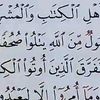 هْلِ الْكِتَابِ وَالْمُشْرِ
ولٌ مِنَ اللَّهِ يَتْلُوا صُحُفًا
تَفَرَّقَ الَّذِينَ أُوتُوا الْكِ
إِلَّا لِيَعْبُدُوا